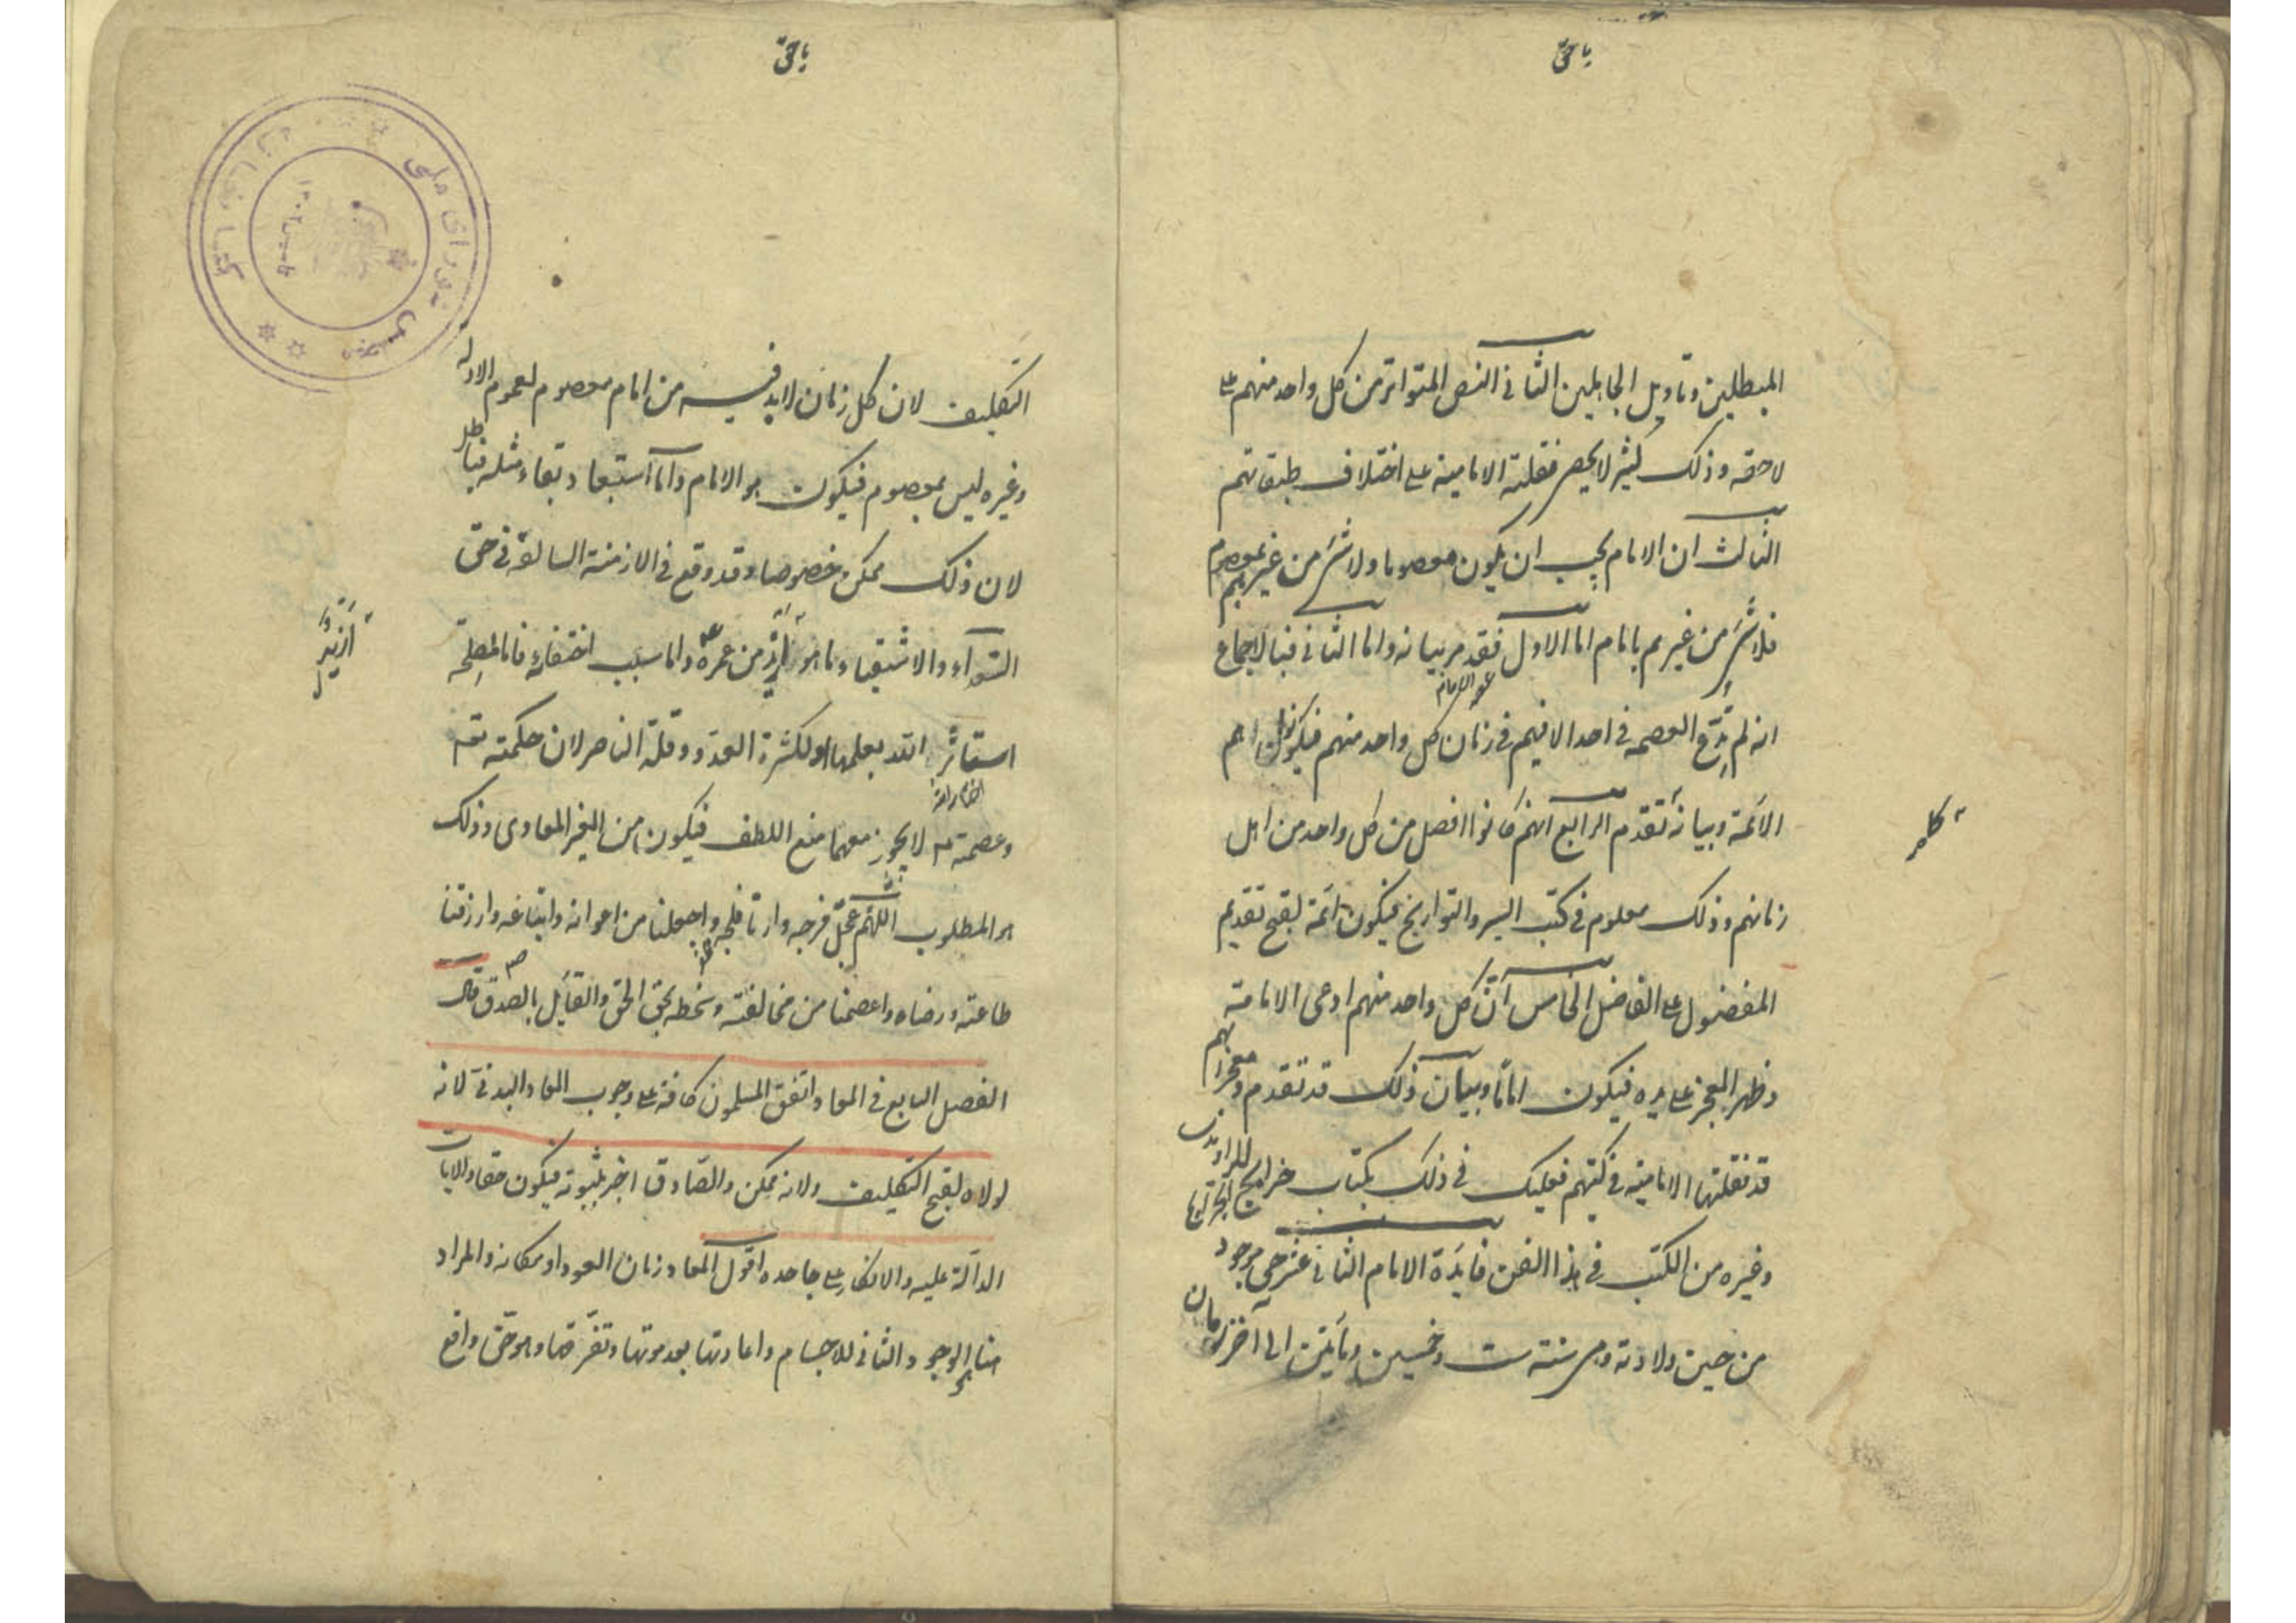 يا حق
المبطلين وتاويل الجاهلين الثانى النص المتواتر من كل واحد منهم على
لاحقه وذلك كثير لا يحصر نقلته الامامية على اختلاف طبقاتهم
الثالث ان الامام يجب ان يكون معصوما ولا شئ من غيرهم بمعصوم
فلا شئ من غيرهم بامام اما الاول فقد مر بيانه واما الثانى فبالاجماع
انه لم يدع العصمه فى احد الا فيهم فى زمان كل واحد منهم فيكونوا هم
الائمة وبيانه تقدم الرابع انهم كانوا افضل من كل واحد من اهل
زمانهم وذلك معلوم فى كتب السير والتواريخ فيكون ائمة لقبح تقديم
المفضول على الفاضل الخامس ان كل واحد منهم ادعى الامامة
وظهر المعجز على يده فيكون اماما وبيان ذلك قد تقدم ومعجزاتهم
قد نقلتها الامامية فى كتبهم فعليك فى ذلك بكتاب خرايج الجرايح للراوندى
وغيره من الكتب فى هذا الفن فايدة الامام الثانى عشر حى موجود
من حين ولادته وهى سنة ست وخمسين ومايتين الى آخر زمان
يا حق
التكليف لان كل زمان لا بد فيه من امام معصوم لعموم الادله
وغيره ليس بمعصوم فيكون هو الامام واما استبعاد بقاء مثله فباطل
لان ذلك ممكن خصوصا وقد وقع فى الازمنة السالفة فى حق
السعداء والاشقياء ما هو ازيد من عمره واما سبب اختفائه فاما لمصلحة
ازيد
استاثر الله بعلمها او لكثرة العدو وقلة الناصر لان حكمته تع
وعصمته لا يجوز معهما منع اللطف فيكون من الغير المعادى وذلك
هو المطلوب اللهم عجل فرجه وارنا فلجه واجعلنا من اعوانه واتباعه وارزقنا
طاعته ورضاه واعصمنا من مخالفته وسخطه بحق الحق والقايل بالصدق قال
الفصل السابع فى المعاد اتفق المسلمون كافة على وجوب المعاد البدنى لانه
لولاه لقبح التكليف ولانه ممكن والصادق اخبر بثبوته فيكون حقا والايات
الدالة عليه والانكار على جاحده اقول المعاد زمان العود او مكانه والمراد
هنا الوجود الثانى للاجسام واعادتها بعد موتها وتفرقها وهو حق واقع